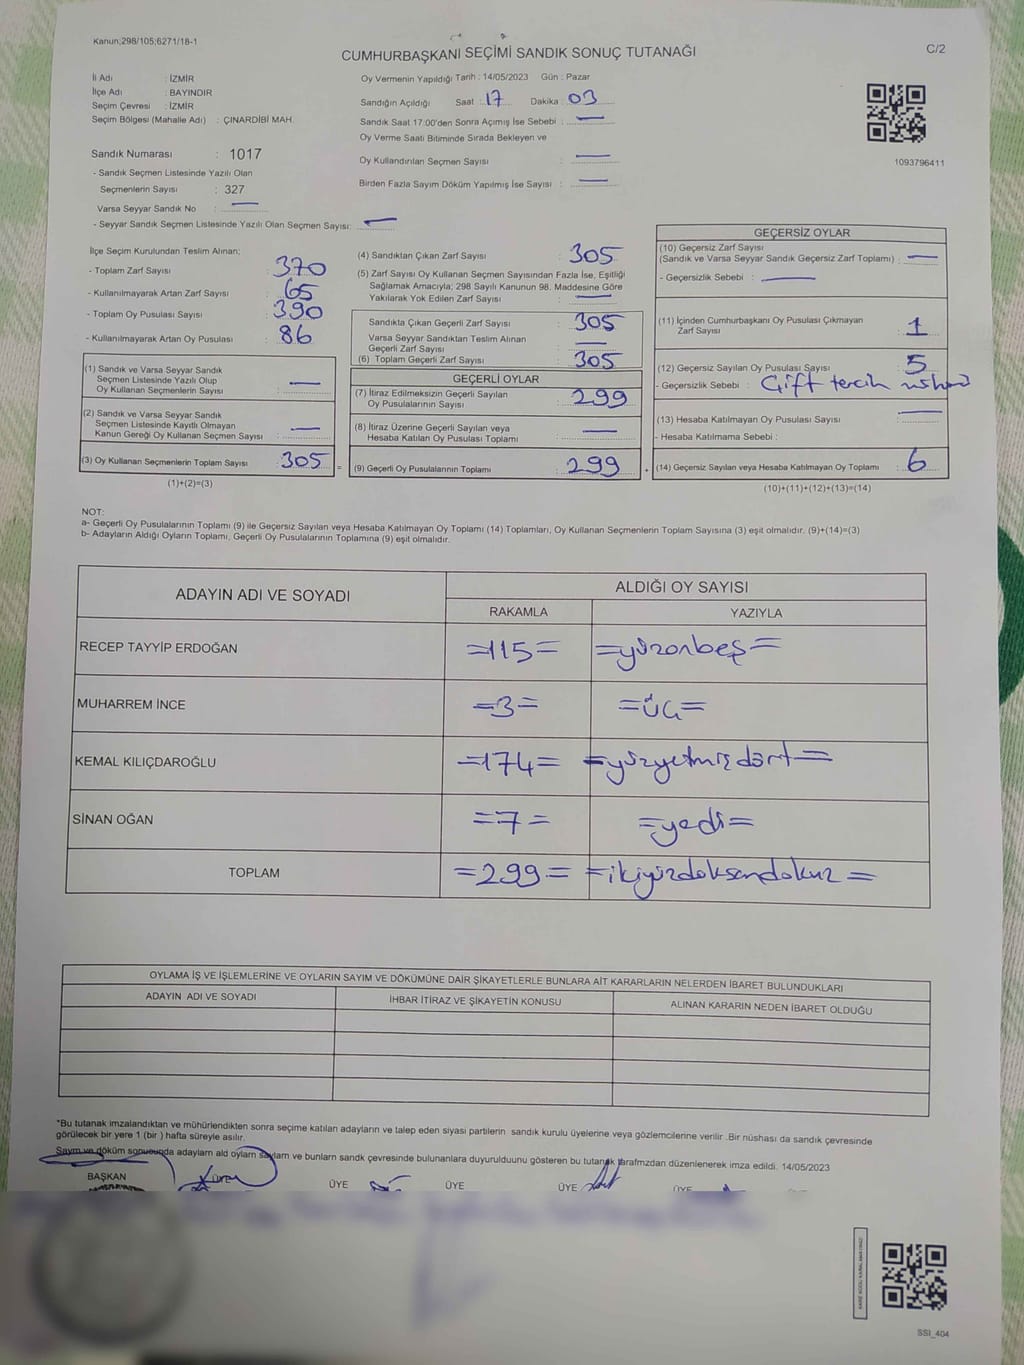 Kanun;298/105;6271/18-1
C/2
CUMHURBAŞKANI SEÇİMİ SANDIK SONUÇ TUTANAĞI
İl Adı : İZMİR
İlçe Adı : BAYINDIR
Seçim Çevresi : İZMİR
Seçim Bölgesi (Mahalle Adı) : ÇINARDİBİ MAH.
Sandık Numarası : 1017
- Sandık Seçmen Listesinde Yazılı Olan
Seçmenlerin Sayısı : 327
Varsa Seyyar Sandık No : —
- Seyyar Sandık Seçmen Listesinde Yazılı Olan Seçmen Sayısı: —
Oy Vermenin Yapıldığı Tarih : 14/05/2023 Gün : Pazar
Sandığın Açıldığı Saat : 17 Dakika : 03
Sandık Saat 17.00'den Sonra Açımış İse Sebebi : —
Oy Verme Saati Bitiminde Sırada Bekleyen ve
Oy Kullandırılan Seçmen Sayısı : —
Birden Fazla Sayım Döküm Yapılmış İse Sayısı : —
1093796411
İlçe Seçim Kurulundan Teslim Alınan;
- Toplam Zarf Sayısı : 370
- Kullanılmayarak Artan Zarf Sayısı : 65
- Toplam Oy Pusulası Sayısı : 390
- Kullanılmayarak Artan Oy Pusulası : 86
(1) Sandık ve Varsa Seyyar Sandık
Seçmen Listesinde Yazılı Olup
Oy Kullanan Seçmenlerin Sayısı : —
(2) Sandık ve Varsa Seyyar Sandık
Seçmen Listesinde Kayıtlı Olmayan
Kanun Gereği Oy Kullanan Seçmen Sayısı : —
(3) Oy Kullanan Seçmenlerin Toplam Sayısı : 305 =
(1)+(2)=(3)
(4) Sandıktan Çıkan Zarf Sayısı : 305
(5) Zarf Sayısı Oy Kullanan Seçmen Sayısından Fazla İse, Eşitliği
Sağlamak Amacıyla; 298 Sayılı Kanunun 98. Maddesine Göre
Yakılarak Yok Edilen Zarf Sayısı : —
Sandıkta Çıkan Geçerli Zarf Sayısı : 305
Varsa Seyyar Sandıktan Teslim Alınan
Geçerli Zarf Sayısı : —
(6) Toplam Geçerli Zarf Sayısı : 305
GEÇERLİ OYLAR
(7) İtiraz Edilmeksizin Geçerli Sayılan
Oy Pusulalarının Sayısı : 299
(8) İtiraz Üzerine Geçerli Sayılan veya
Hesaba Katılan Oy Pusulası Toplamı : —
(9) Geçerli Oy Pusulalarının Toplamı : 299 +
GEÇERSİZ OYLAR
(10) Geçersiz Zarf Sayısı
(Sandık ve Varsa Seyyar Sandık Geçersiz Zarf Toplamı) : —
- Geçersizlik Sebebi : —
(11) İçinden Cumhurbaşkanı Oy Pusulası Çıkmayan
Zarf Sayısı : 1
(12) Geçersiz Sayılan Oy Pusulası Sayısı : 5
- Geçersizlik Sebebi : Çift tercih
(13) Hesaba Katılmayan Oy Pusulası Sayısı : —
- Hesaba Katılmama Sebebi :
(14) Geçersiz Sayılan veya Hesaba Katılmayan Oy Toplamı : 6
(10)+(11)+(12)+(13)=(14)
NOT:
a- Geçerli Oy Pusulalarının Toplamı (9) ile Geçersiz Sayılan veya Hesaba Katılmayan Oy Toplamı (14) Toplamları, Oy Kullanan Seçmenlerin Toplam Sayısına (3) eşit olmalıdır. (9)+(14)=(3)
b- Adayların Aldığı Oyların Toplamı, Geçerli Oy Pusulalarının Toplamına (9) eşit olmalıdır.
ADAYIN ADI VE SOYADI
ALDIĞI OY SAYISI
RAKAMLA YAZIYLA
RECEP TAYYİP ERDOĞAN =115= =yüzonbeş=
MUHARREM İNCE =3= =üç=
KEMAL KILIÇDAROĞLU =174= =yüzyetmişdört=
SİNAN OĞAN =7= =yedi=
TOPLAM =299= =ikiyüzdoksandokuz=
OYLAMA İŞ VE İŞLEMLERİNE VE OYLARIN SAYIM VE DÖKÜMÜNE DAİR ŞİKAYETLERLE BUNLARA AİT KARARLARIN NELERDEN İBARET BULUNDUKLARI
ADAYIN ADI VE SOYADI İHBAR İTİRAZ VE ŞİKAYETİN KONUSU ALINAN KARARIN NEDEN İBARET OLDUĞU
*Bu tutanak imzalandıktan ve mühürlendikten sonra seçime katılan adayların ve talep eden siyasi partilerin sandık kurulu üyelerine veya gözlemcilerine verilir .Bir nüshası da sandık çevresinde
görülecek bir yere 1 (bir ) hafta süreyle asılır.
Sayım ve döküm sonucunda adayların ald oyların saylam ve bunların sandk çevresinde bulunanlara duyurulduunu gösteren bu tutanak tarafmzdan düzenlenerek imza edildi. 14/05/2023
BAŞKAN ÜYE ÜYE ÜYE ÜYE ÜYE
SSI_404